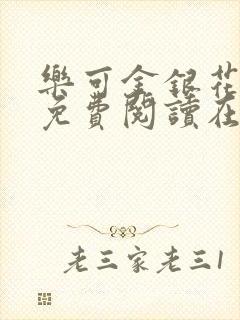 樂可金銀花
免費閱讀在
老三家老三1